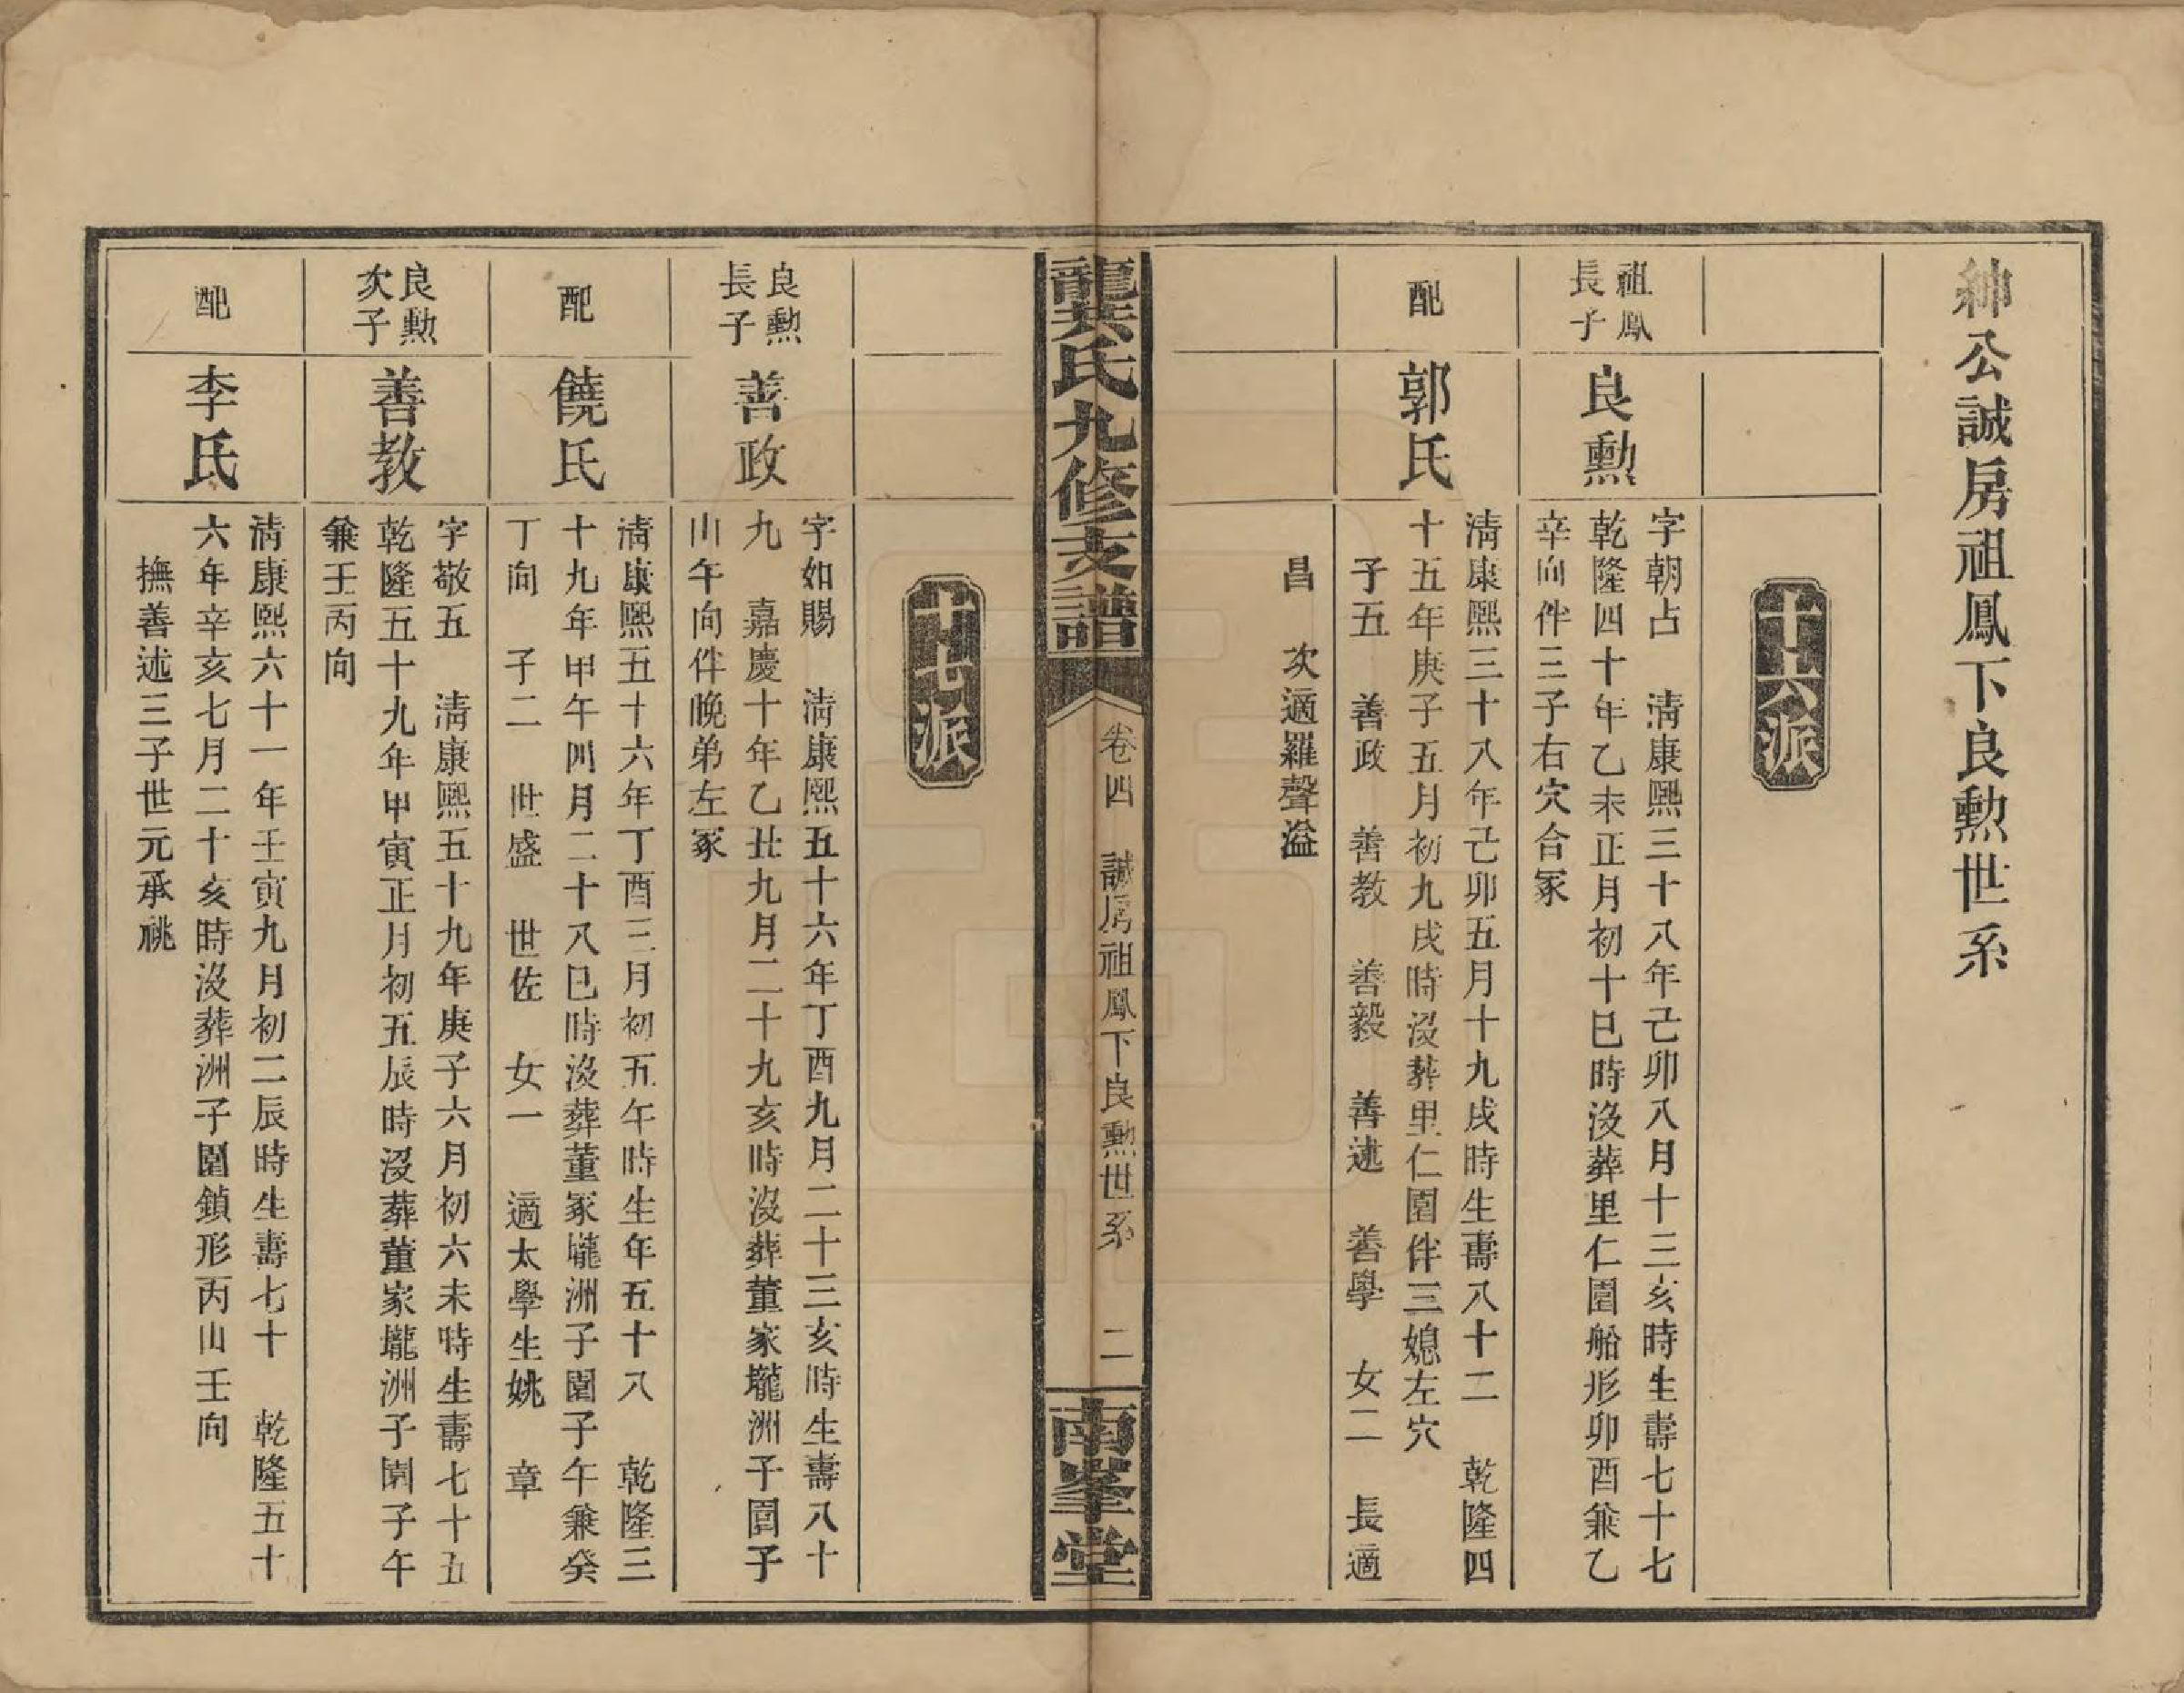 紳公誠房祖鳳下良勲世系
十六派
祖鳳
長子
良勲
字朝占　清康熙三十八年己卯八月十三亥時生壽七十七
乾隆四十年乙未正月初十巳時沒葬里仁園船形卯酉兼乙
辛向伴三子右穴合冢
配
郭氏
清康熙三十八年己卯五月十九戌時生壽八十二　乾隆四
十五年庚子五月初九戌時沒葬里仁園伴三媳左穴
子五　善政　善教　善毅　善述　善學　女二　長適
昌　次適羅聲溢
龔氏九修支譜
卷四　誠房祖鳳下良勲世系　二
南峯堂
十七派
良勲
長子
善政
字如賜　清康熙五十六年丁酉九月二十三亥時生壽八十
九　嘉慶十年乙丑九月二十九亥時沒葬董家壠洲子園子
山午向伴晚弟左冢
配
饒氏
清康熙五十六年丁酉三月初五午時生年五十八　乾隆三
十九年甲午四月二十八巳時沒葬董冢壠洲子園子午兼癸
丁向　子二　世盛　世佐　女一　適太學生姚　章
良勲
次子
善教
字敬五　清康熙五十九年庚子六月初六未時生壽七十五
乾隆五十九年甲寅正月初五辰時沒葬董家壠洲子園子午
兼壬丙向
配
李氏
清康熙六十一年壬寅九月初二辰時生壽七十　乾隆五十
六年辛亥七月二十亥時沒葬洲子園鎖形丙山壬向
撫善述三子世元承祧